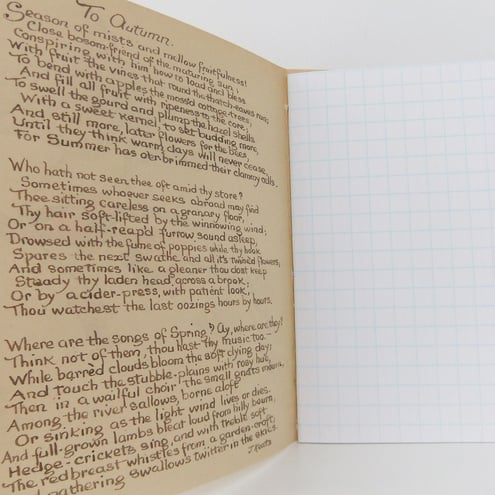 To Autumn.
Season of mists and mellow fruitfulness!
Close bosom-friend of the maturing sun;
Conspiring with him how to load and bless
With fruit the vines that round the thatch-eaves run;
To bend with apples the moss'd cottage-trees,
And fill all fruit with ripeness to the core;
To swell the gourd and plump the hazel shells
With a sweet kernel; to set budding more,
And still more, later flowers for the bees,
Until they think warm days will never cease,
For Summer has o'erbrimmed their clammy cells.
Who hath not seen thee oft amid thy store?
Sometimes whoever seeks abroad may find
Thee sitting careless on a granary floor,
Thy hair soft-lifted by the winnowing wind;
Or on a half-reap'd furrow sound asleep,
Drowsed with the fume of poppies while thy hook
Spares the next swathe and all its twined flowers;
And sometimes like a gleaner thou dost keep
Steady thy laden head across a brook;
Or by a cider-press, with patient look,
Thou watchest the last oozings hours by hours.
Where are the songs of Spring? Ay, where are they?
Think not of them, thou hast thy music too.—
While barred clouds bloom the soft dying day;
And touch the stubble-plains with rosy hue,
Then in a wailful choir the small gnats mourn,
Among the river sallows, borne aloft
Or sinking as the light wind lives or dies.
And full-grown lambs bleat loud from hilly bourn,
Hedge-crickets sing, and with treble soft
The redbreast whistles from a garden-croft;
gathering swallows twitter in the skies.
J. Keats